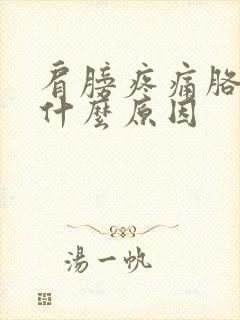 肩膀疼痛胳
什麼原因
湯一帆